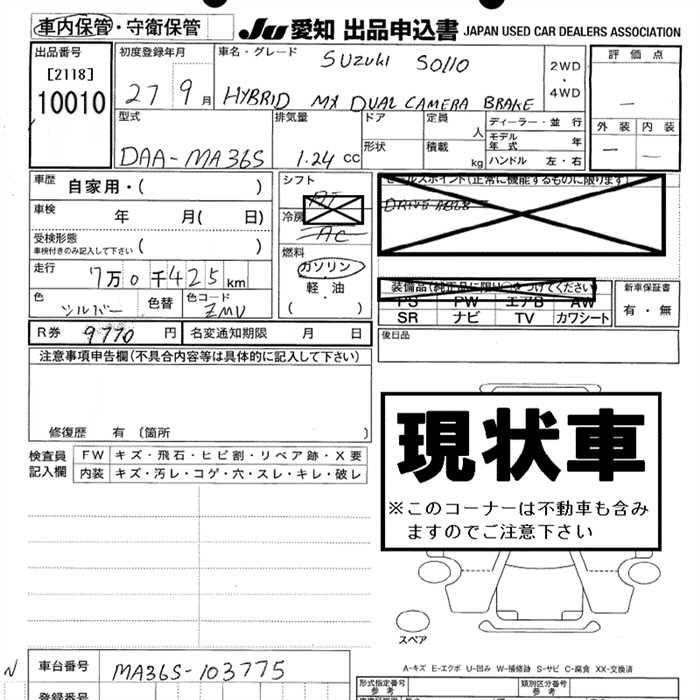 車内保管・守衛保管
JU 愛知 出品申込書 JAPAN USED CAR DEALERS ASSOCIATION
出品番号
[2118]
10010
初度登録年月
27 9月
車名・グレード
SUZUKI SOLIO
HYBRID MX DUAL CAMERA BRAKE
2WD
・
4WD
評価点
—
外装 内装
— —
型式
DAA-MA36S
排気量
1.24 cc
ドア
形状
定員 人
積載 kg
ディーラー・並行
モデル年式 年
ハンドル 左・右
車歴 自家用・( )
車検 年 月( 日)
受検形態
車検付きのみ記入して下さい ( )
走行 7万0千425km
色 シルバー 色替 色コード ZMV
R券 9770 円 名変通知期限 月 日
シフト
AT
冷房
AC
燃料
ガソリン
軽・油
( )
セールスポイント(正常に機能するものに限ります)
DRIVE ABLE
装備品(純正品に限り○をつけてください)
PS PW エアB AW
SR ナビ TV カワシート
新車保証書
有・無
後日品
注意事項申告欄(不具合内容等は具体的に記入して下さい)
修復歴 有 〔箇所 〕
検査員記入欄
FW キズ・飛石・ヒビ割・リペア跡・X要
内装 キズ・汚レ・コゲ・穴・スレ・キレ・破レ
現状車
※このコーナーは不動車も含みますのでご注意下さい
スペア
A-キズ E-エクボ U-凹み W-補修跡 S-サビ C-腐食 XX-交換済
N
車台番号 MA36S-103775
登録番号
形式指定番号
参考
類別区分番号
参考